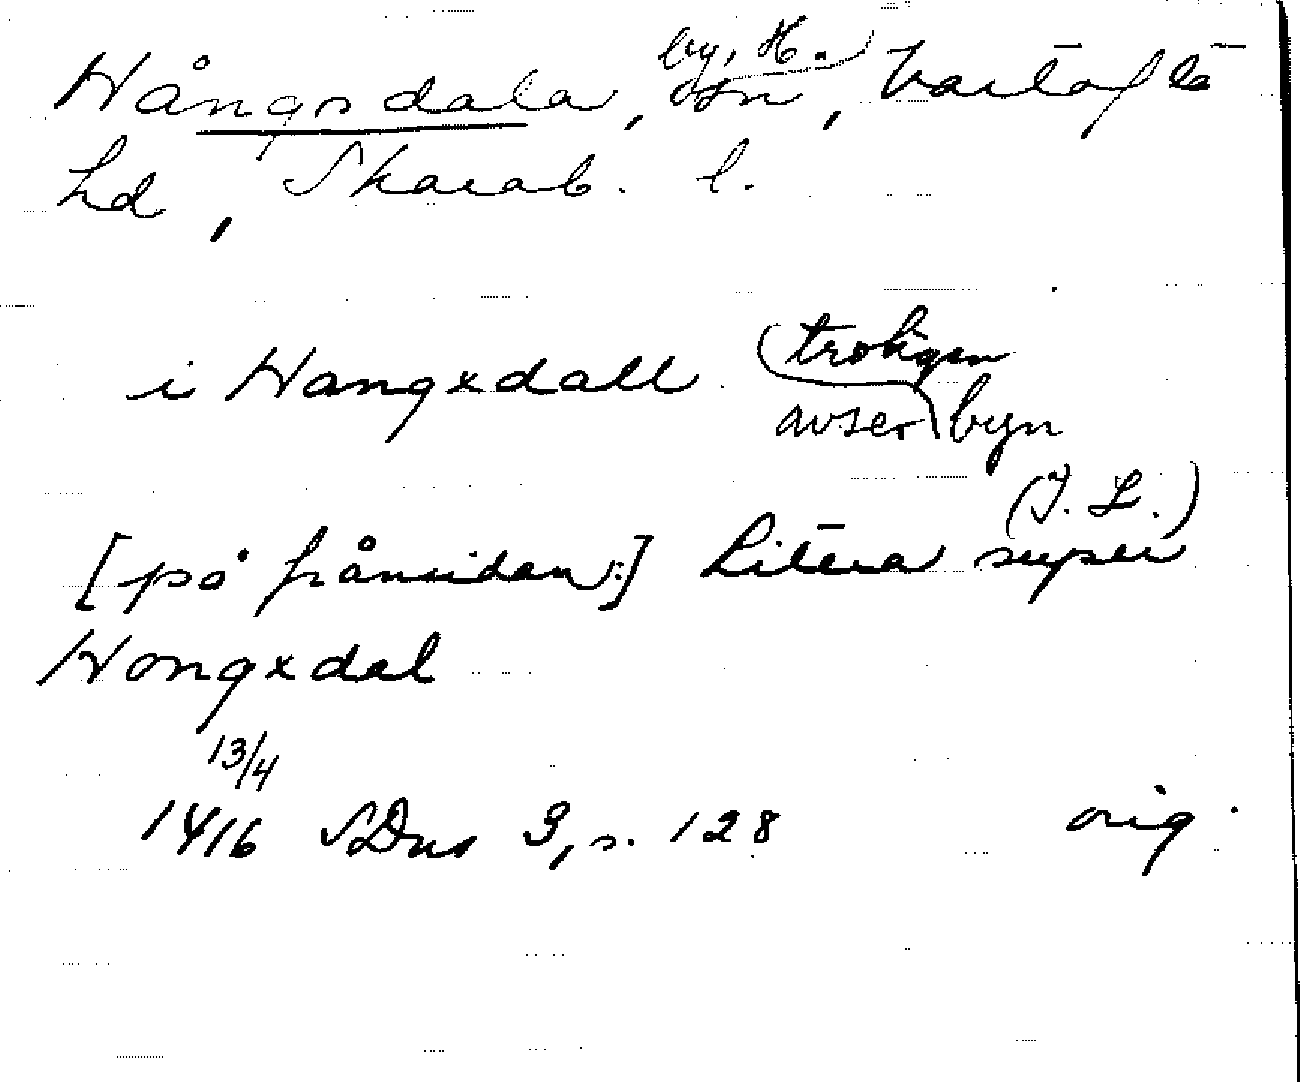 Hångsdala, by, H. sn, Vartofta
hd, Skarab. l.
i Hangxdall (troligen
avser byn
(J. L.)
[på frånsidan:] Litera super
Hongxdal
13/4
1416 SDns 3, s. 128 orig.